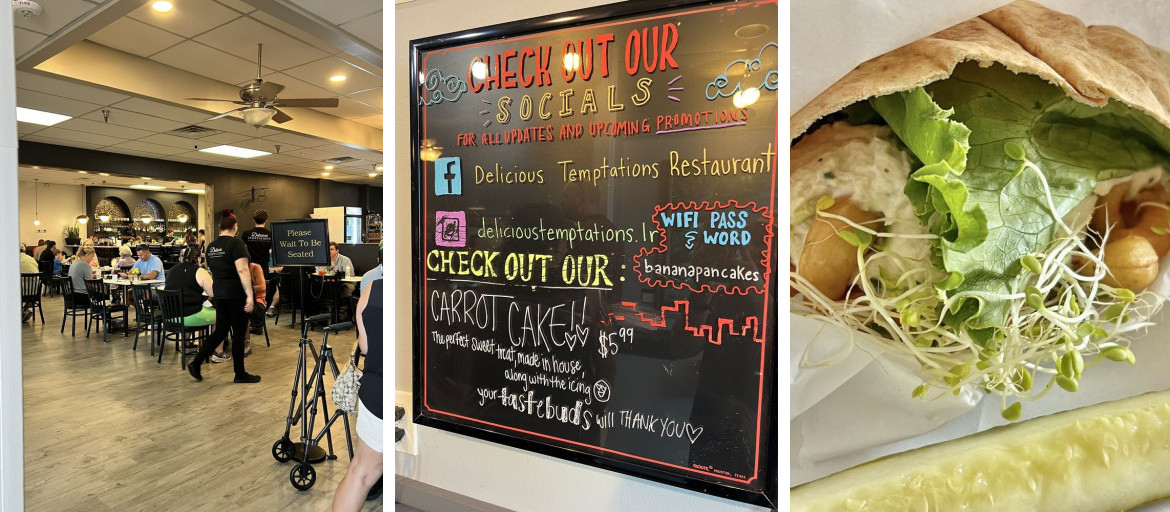 Please
Wait To Be
Seated
CHECK OUT OUR
SOCIALS
FOR ALL UPDATES AND UPCOMING PROMOTIONS
f Delicious Temptations Restaurant
delicioustemptations.lr
WIFI PASS
& WORD
bananapancakes
CHECK OUT OUR :
CARROT CAKE!!
$5.99
The perfect sweet treat, made in house,
along with the icing
your tastebuds will THANK YOU